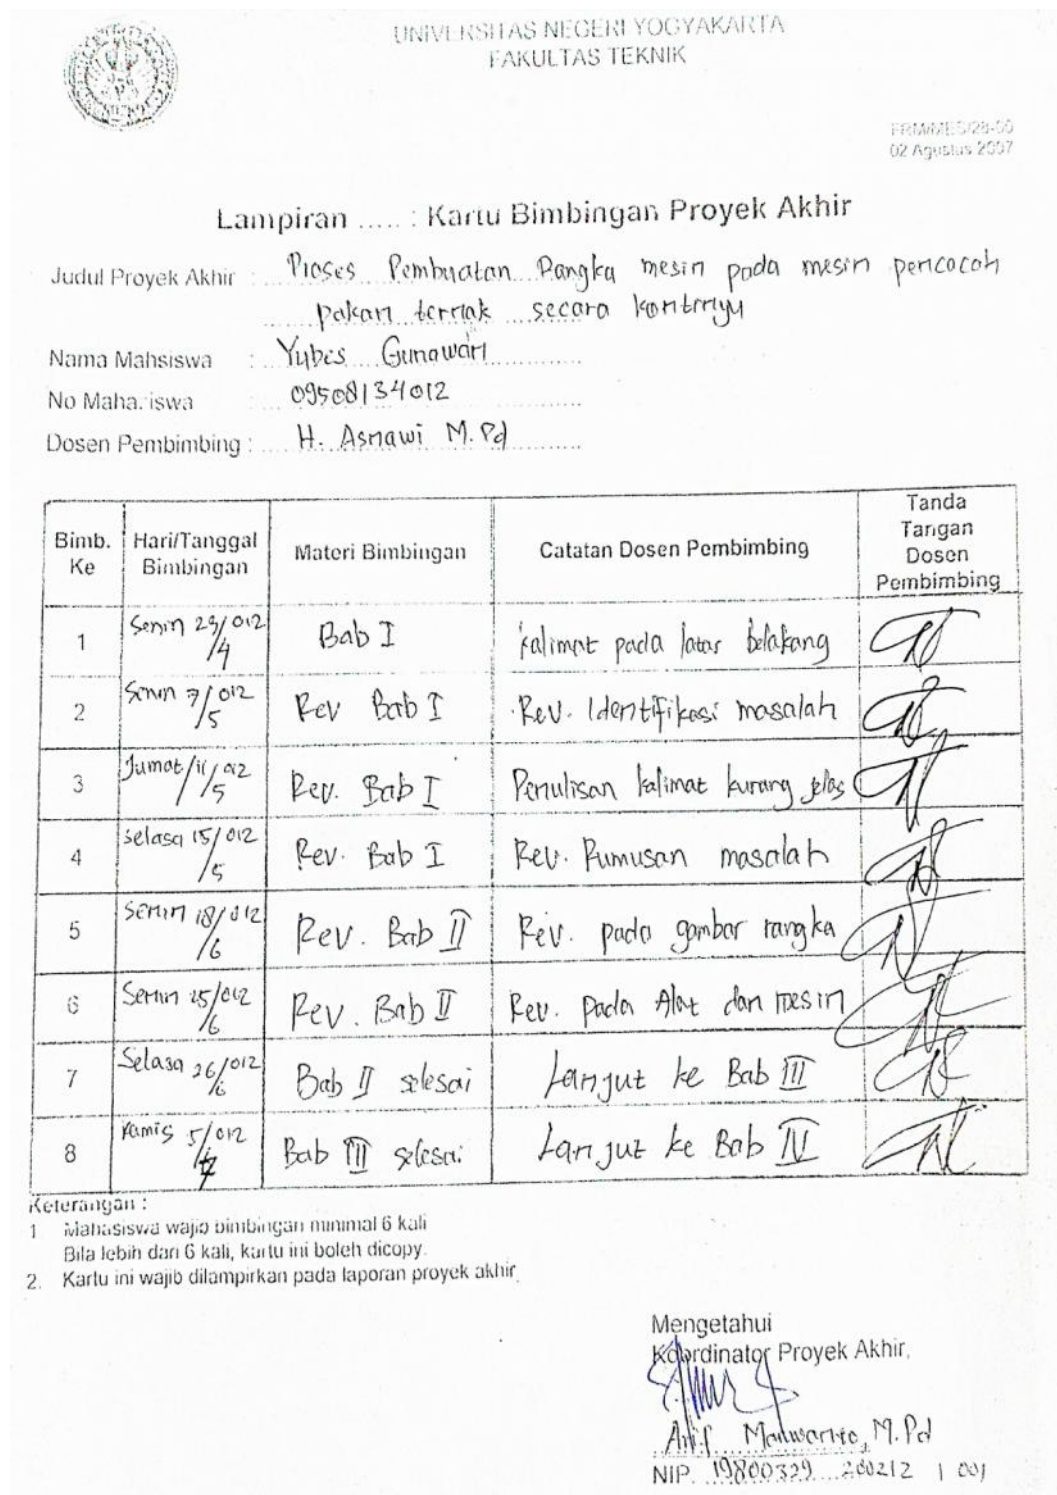 UNIVERSITAS NEGERI YOGYAKARTA
FAKULTAS TEKNIK
FRM/MES/28-00
02 Agustus 2007
Lampiran ..... : Kartu Bimbingan Proyek Akhir
Judul Proyek Akhir : Proses Pembuatan Rangka mesin pada mesin pencacah
pakan ternak secara kontinyu
Nama Mahsiswa : Yubes Gunawan
No Mahasiswa 09508134012
Dosen Pembimbing : H. Asnawi M.Pd
Bimb. Ke Hari/Tanggal Bimbingan Materi Bimbingan Catatan Dosen Pembimbing Tanda Tangan Dosen Pembimbing
1 Senin 23/012/4 Bab I kalimat pada latar belakang
2 Senin 7/012/5 Rev Bab I Rev. Identifikasi masalah
3 Jumat/11/012/5 Rev. Bab I Penulisan kalimat kurang jelas
4 selasa 15/012/5 Rev. Bab I Rev. Rumusan masalah
5 Senin 18/012/6 Rev. Bab II Rev. pada gambar rangka
6 Senin 25/012/6 Rev. Bab II Rev. pada Alat dan mesin
7 Selasa 26/012/6 Bab II selesai Lanjut ke Bab III
8 Kamis 5/012/7 Bab III selesai Lanjut ke Bab IV
Keterangan :
1 Mahasiswa wajib bimbingan minimal 6 kali
Bila lebih dari 6 kali, kartu ini boleh dicopy.
2. Kartu ini wajib dilampirkan pada laporan proyek akhir
Mengetahui
Koordinator Proyek Akhir,
Arif Marwanto, M.Pd
NIP. 19800329 200212 1 001